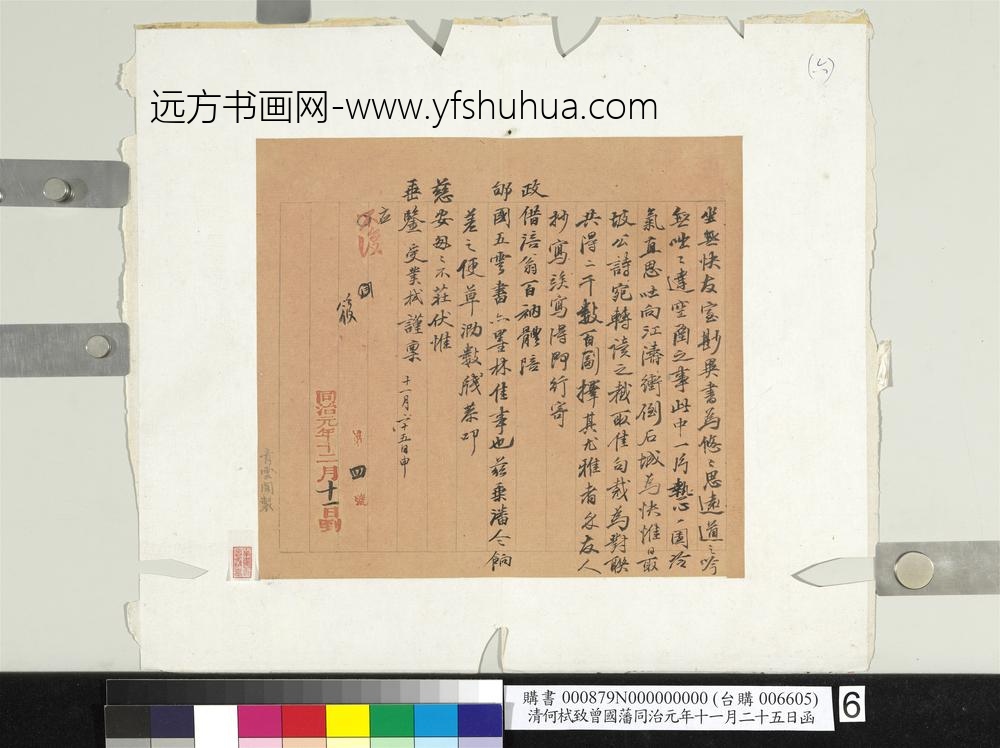 (六)
远方书画网-www.yfshuhua.com
坐無快友室尠異書為悠悠思遠道之吟
無咄咄達空函之事此中一片熱心固冷
氣直思吐向江濤衝倒石城為快惟日最
坡公詩宛轉讀之截取佳句裁為對聯
共得二千數百圖擇其尤雅者分友人
抄寫談寫得即行寄
政借涪翁百衲體陪
郇國五雲書亦墨林佳事也茲乘潘令餉
差之便草泐數牋恭叩
慈安匆匆不莊伏惟
垂鑒受業栻謹稟 十一月二十五日申
同治元年十二月十一日到
四
號
購書 000879N000000000 (台購 006605)
清何栻致曾國藩同治元年十一月二十五日函
6